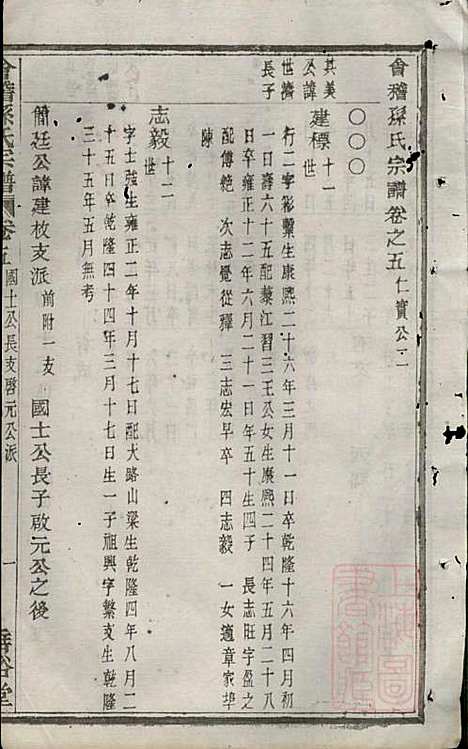 會稽孫氏宗譜卷之五 仁實公二
〇〇〇
其美公諱世濟長子
建標 十一世
行二字彩繫生康熙二十六年三月十一日卒乾隆十六年四月初
一日壽六十五配蓁江習三王公女生康熙二十四年五月二十八
日卒雍正十二年六月二十一日年五十生四子 長志旺字盈之
配傅絕 次志覺從釋 三志宏早卒 四志毅 一女適章家埠
陳
志毅 十二世
字士強生雍正二年十月十七日配大路山梁生乾隆四年八月二
十五日卒乾隆四十四年三月十七日生一子祖興字繁支生乾隆
三十五年五月無考
簡廷公諱建枚支派 前附一支 國士公長子啟元公之後
會稽孫氏宗譜 卷五 國士公長支啓元公派 一 垂裕堂